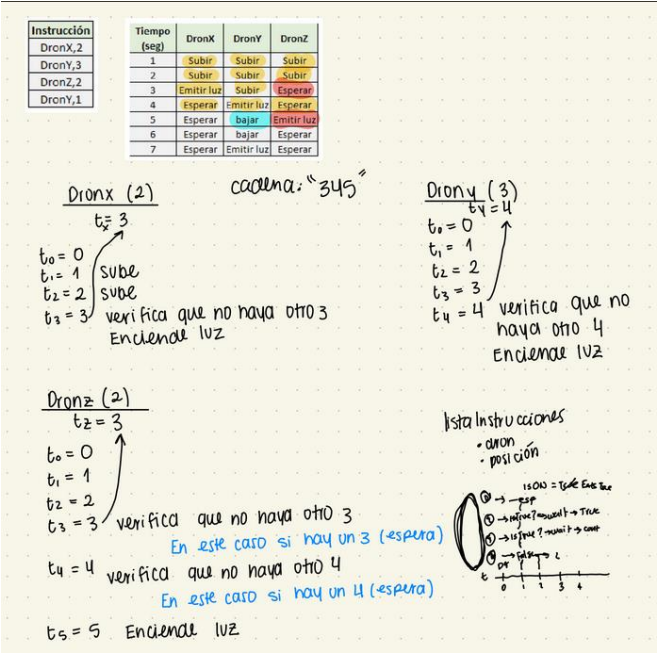 Instrucción
DronX,2
DronY,3
DronZ,2
DronY,1
Tiempo (seg) DronX DronY DronZ
1 Subir Subir Subir
2 Subir Subir Subir
3 Emitir luz Subir Esperar
4 Esperar Emitir luz Esperar
5 Esperar bajar Emitir luz
6 Esperar bajar Esperar
7 Esperar Emitir luz Esperar
cadena: "345"
Dronx (2)
tx= 3
t0 = 0
t1 = 1 sube
t2 = 2 sube
t3 = 3 verifica que no haya otro 3
Enciende luz
Drony (3)
ty = 4
t0 = 0
t1 = 1
t2 = 2
t3 = 3
t4 = 4 verifica que no
haya otro 4
Enciende luz
Dronz (2)
tz = 3
t0 = 0
t1 = 1
t2 = 2
t3 = 3 verifica que no haya otro 3
En este caso si hay un 3 (espera)
t4 = 4 verifica que no haya otro 4
En este caso si hay un 4 (espera)
t5 = 5 Enciende luz
lista Instrucciones
• dron
• posición
t 0 1 2 3 4